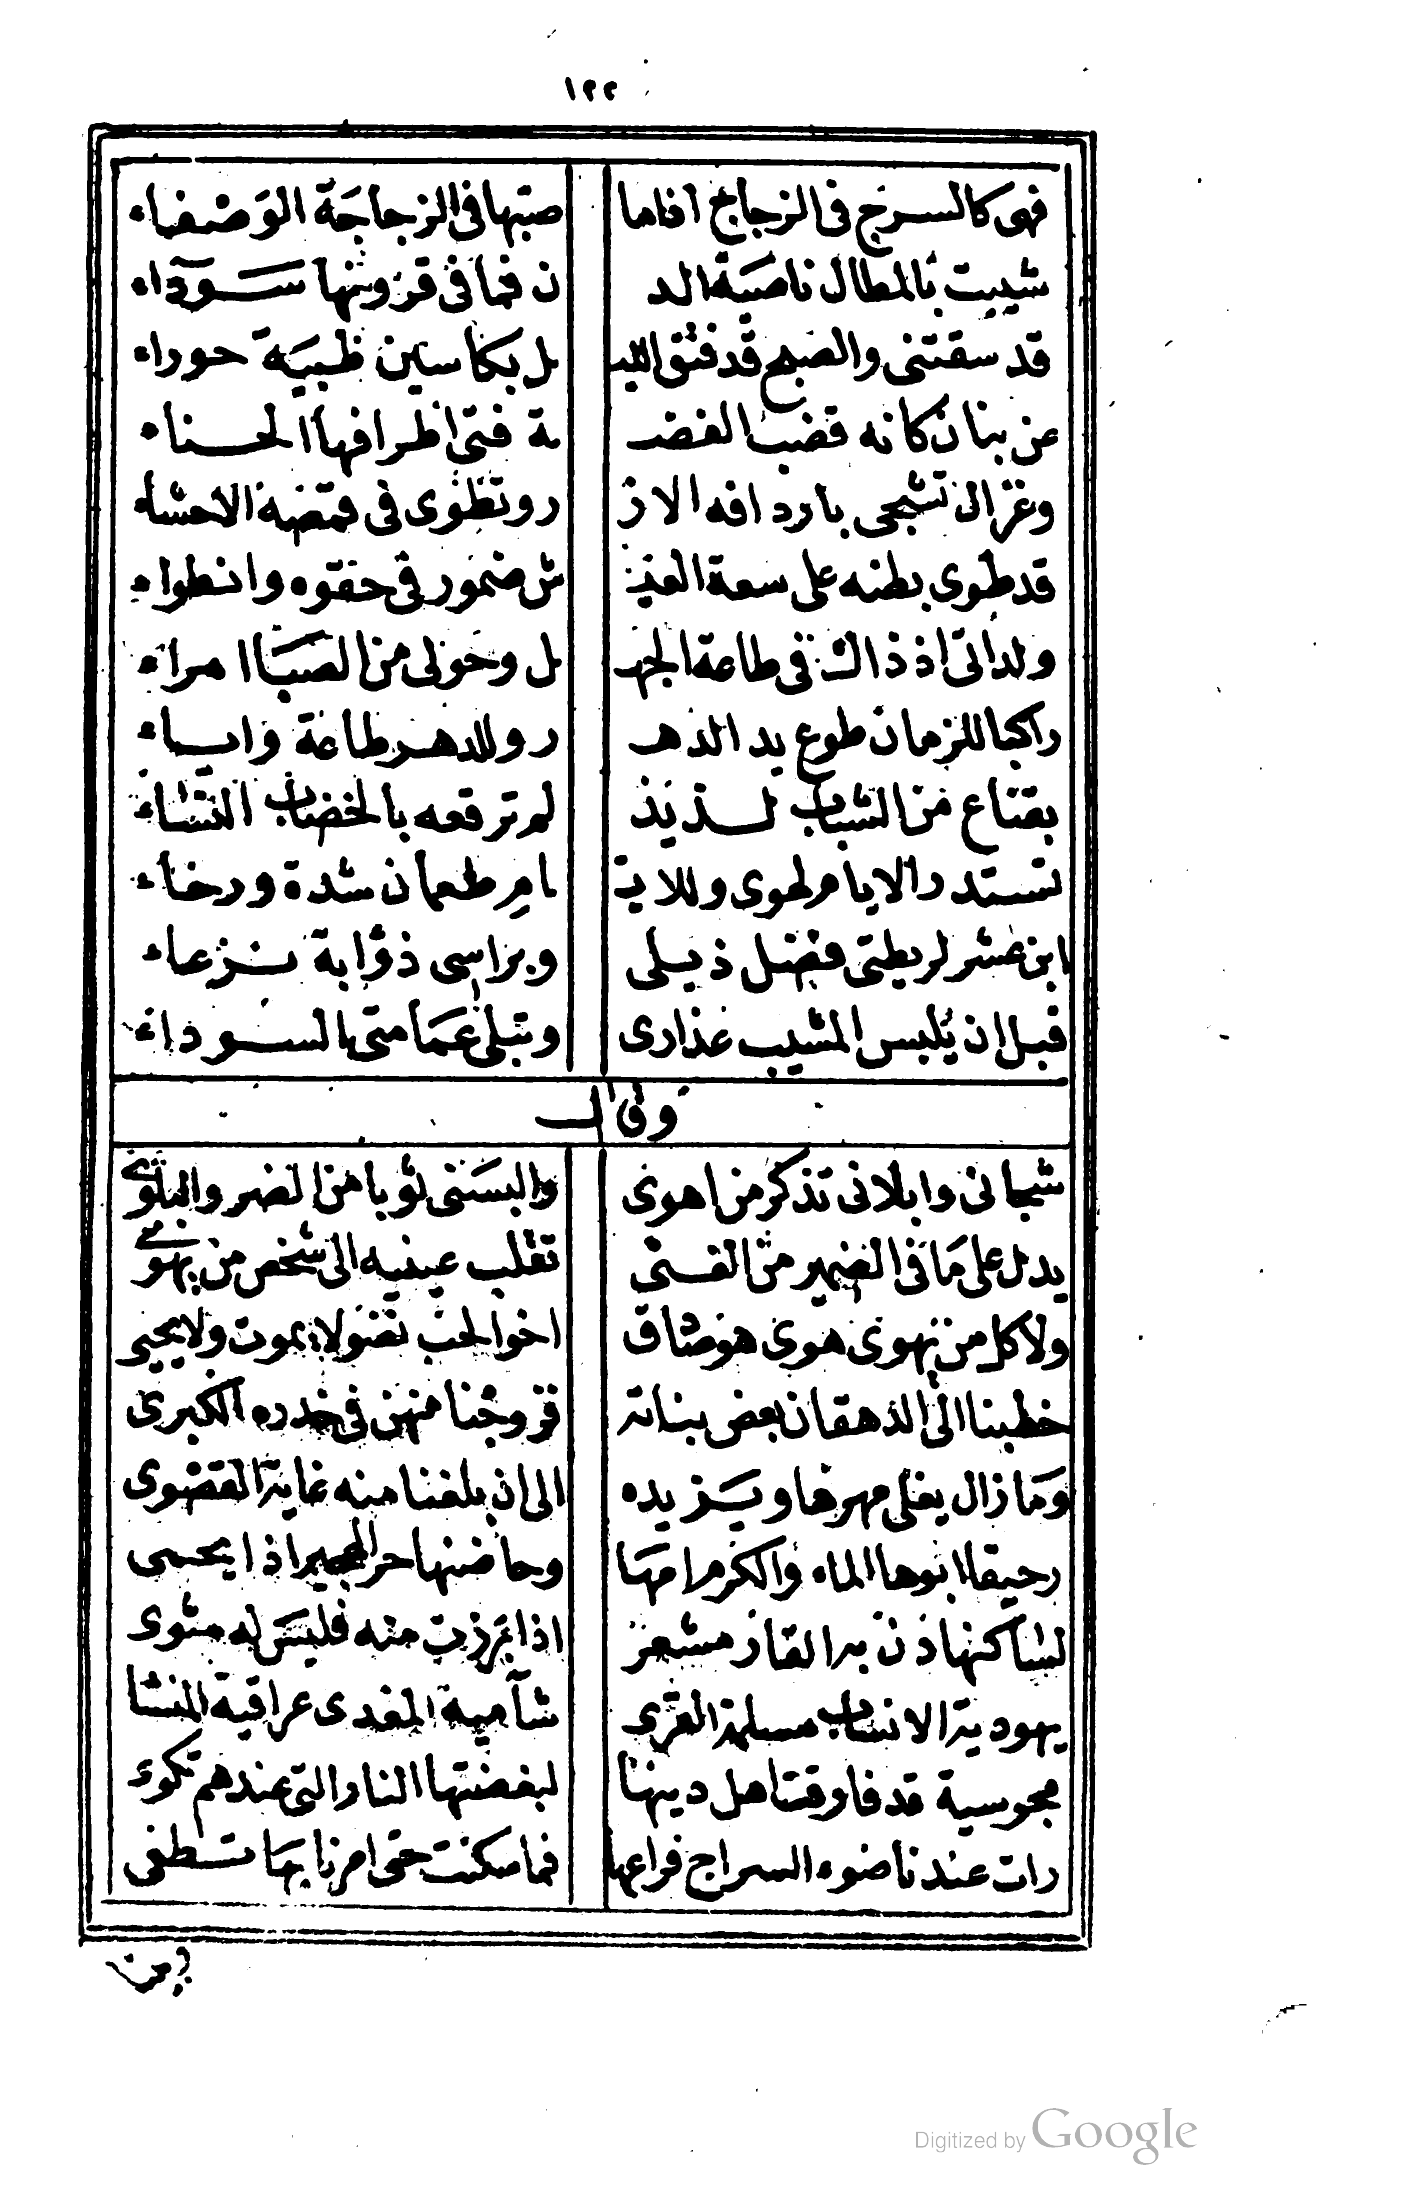 ١٢٢
فهى كالسرج فى الزجاج اذا ما صبتها فى الزجاجة الوصفاء
شيبت بالمطال ناصية الد ن فما فى قرونها سوداء
قد سقتنى والصبح قد فتق الليـ ـل بكأسين ظبية حوراء
عن بنان كانه قضب الفضـ ـة فتى اطرافها الحناء
وغزال تشجى باردافه الاز ر وتطوى فى قمصه الاحشاء
قد طوى بطنه على سعة العيـ ـش ضمور فى حقوه وانطواء
ولدانى اذ ذاك فى طاعة الجهـ ـل وحولى من الصبا امراء
راكبا للزمان طوع يد الدهـ ـر وللدهر طاعة واباء
بقناع من الشباب لذيذ لم ترقعه بالخضاب النساء
تستدر الايام لهوى وللايـ ـام طعمان شدة ورخاء
ابن عشر لريطتى فضل ذيلى وبراسى ذؤابة نزعاء
قبل ان يلبس المشيب عذارى وتبلى عمامتى السوداء
وقال
شجانى وابلانى تذكر من اهوى والبسنى ثوبا من الضر والبلوى
يدل على ما فى الضمير من الفتى تقلب عينيه الى شخص من يهوى
ولا كل من يهوى هوى هو صادق اخو الحب نضو لا يموت ولا يحيى
خطبنا الى الدهقان بعض بناته فزوجنا منهن فى خدره الكبرى
وما زال يغلى مهرها ويزيده الى ان بلغنا منه غايته القصوى
رحيقا ابوها الماء والكرم امها وحاضنها حر الهجير اذا يحمى
لساكنها دن به القار مشعر اذا برزت منه فليس له مثوى
يهودية الانساب مسلمة القرى شآمية المغدى عراقية المنشا
مجوسية قد فارقت اهل دينها لبغضتها النار التى عندهم تكوى
رات عندنا ضوء السراج فراعها فما سكنت حتى امرنا بها تطفى
Digitized by Google